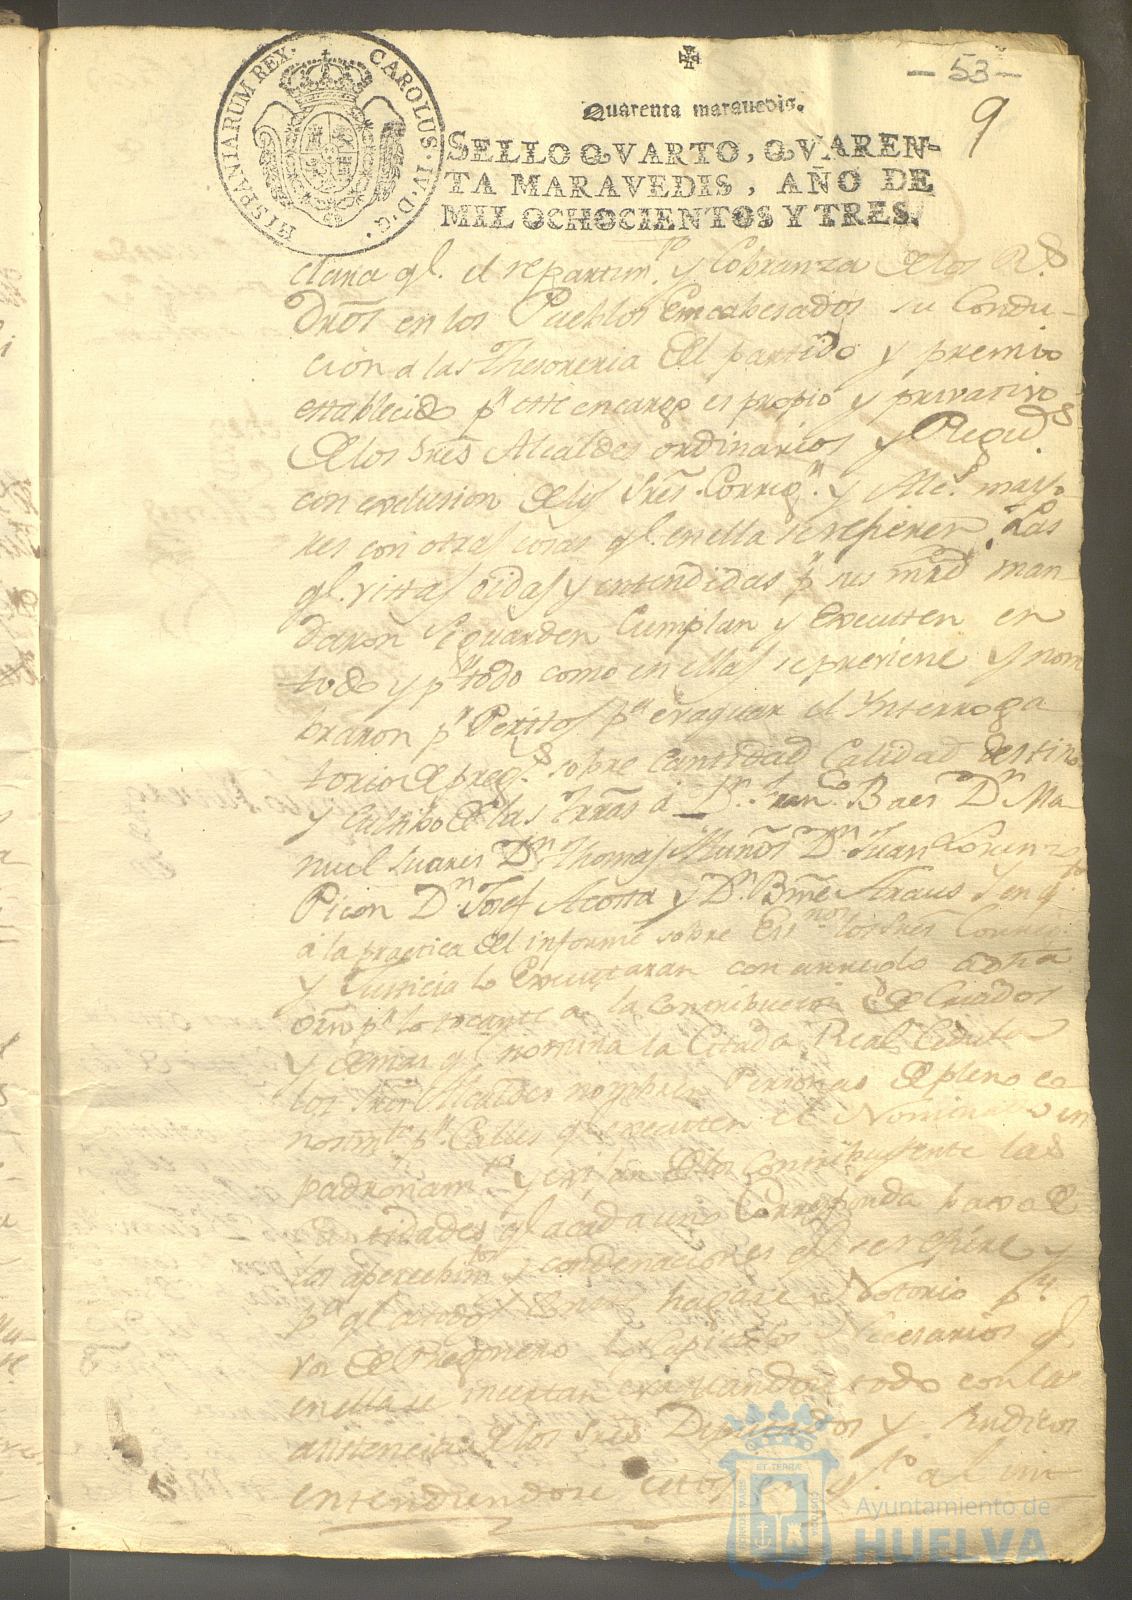 HISPANIARUM REX. CAROLUS. IV. D. G.
– 53 –
9
Quarenta maravedis.
SELLO QVARTO, QVAREN-
TA MARAVEDIS, AÑO DE
MIL OCHOCIENTOS Y TRES.
clara ql. el repartimto. y Cobranza de los Rs.
Dros en los Pueblos Encabesados su Condu-
cion a las Thesoreria del partido y premio
establecido pr. este encargo es propio y privativo
de los Sres Alcaldes ordinarios y Regids.
con exclusion de los Sres. Corregrs. y Alcs. mayo-
res con otras cosas ql. en ella se refieren. Las
ql. vistas oidas y entendidas pr. sus mrds man-
daron se guarden Cumplan y executen en
todo y pr. todo como en ellas se previene y nom
braron pr. Peritos pa. evaquar el Ynterroga
torio de pregs. sobre Cantidad Calidad destino
y Cultibo de las trras á Dn. Franco. Baes Dn. Ma
nuel Suares Dn. Thomas Muños Dn. Juan Lorenzo
Picon Dn. Josef Acosta y Dn. Bme Araus y en qto.
á la practica del informe sobre los Sres Correg.
y Justicia lo Executaran con arreglo a dha
orn pa. lo tocante a la Contribucion de Criados
y demas ql. nomina la Citada Real Cedula
los Sres Alcaldes nombren Personas de pleno co
nosimto. pr. Calles qe. executen el Nominado en
padronamto. y exijan de los Contribuyente las
ql. a cada uno Corresponda baxo de
los apercebimtos y condenaciones qe. se refiere y
pa. ql. hagase Notorio pr.
vos de Pregonero los Capitulos Necesarios ql.
en ella se incertan evaquandose todo con la
asistencia de los Sres Diputados y Sindicos
entendiendose
Ayuntamiento de
HUELVA